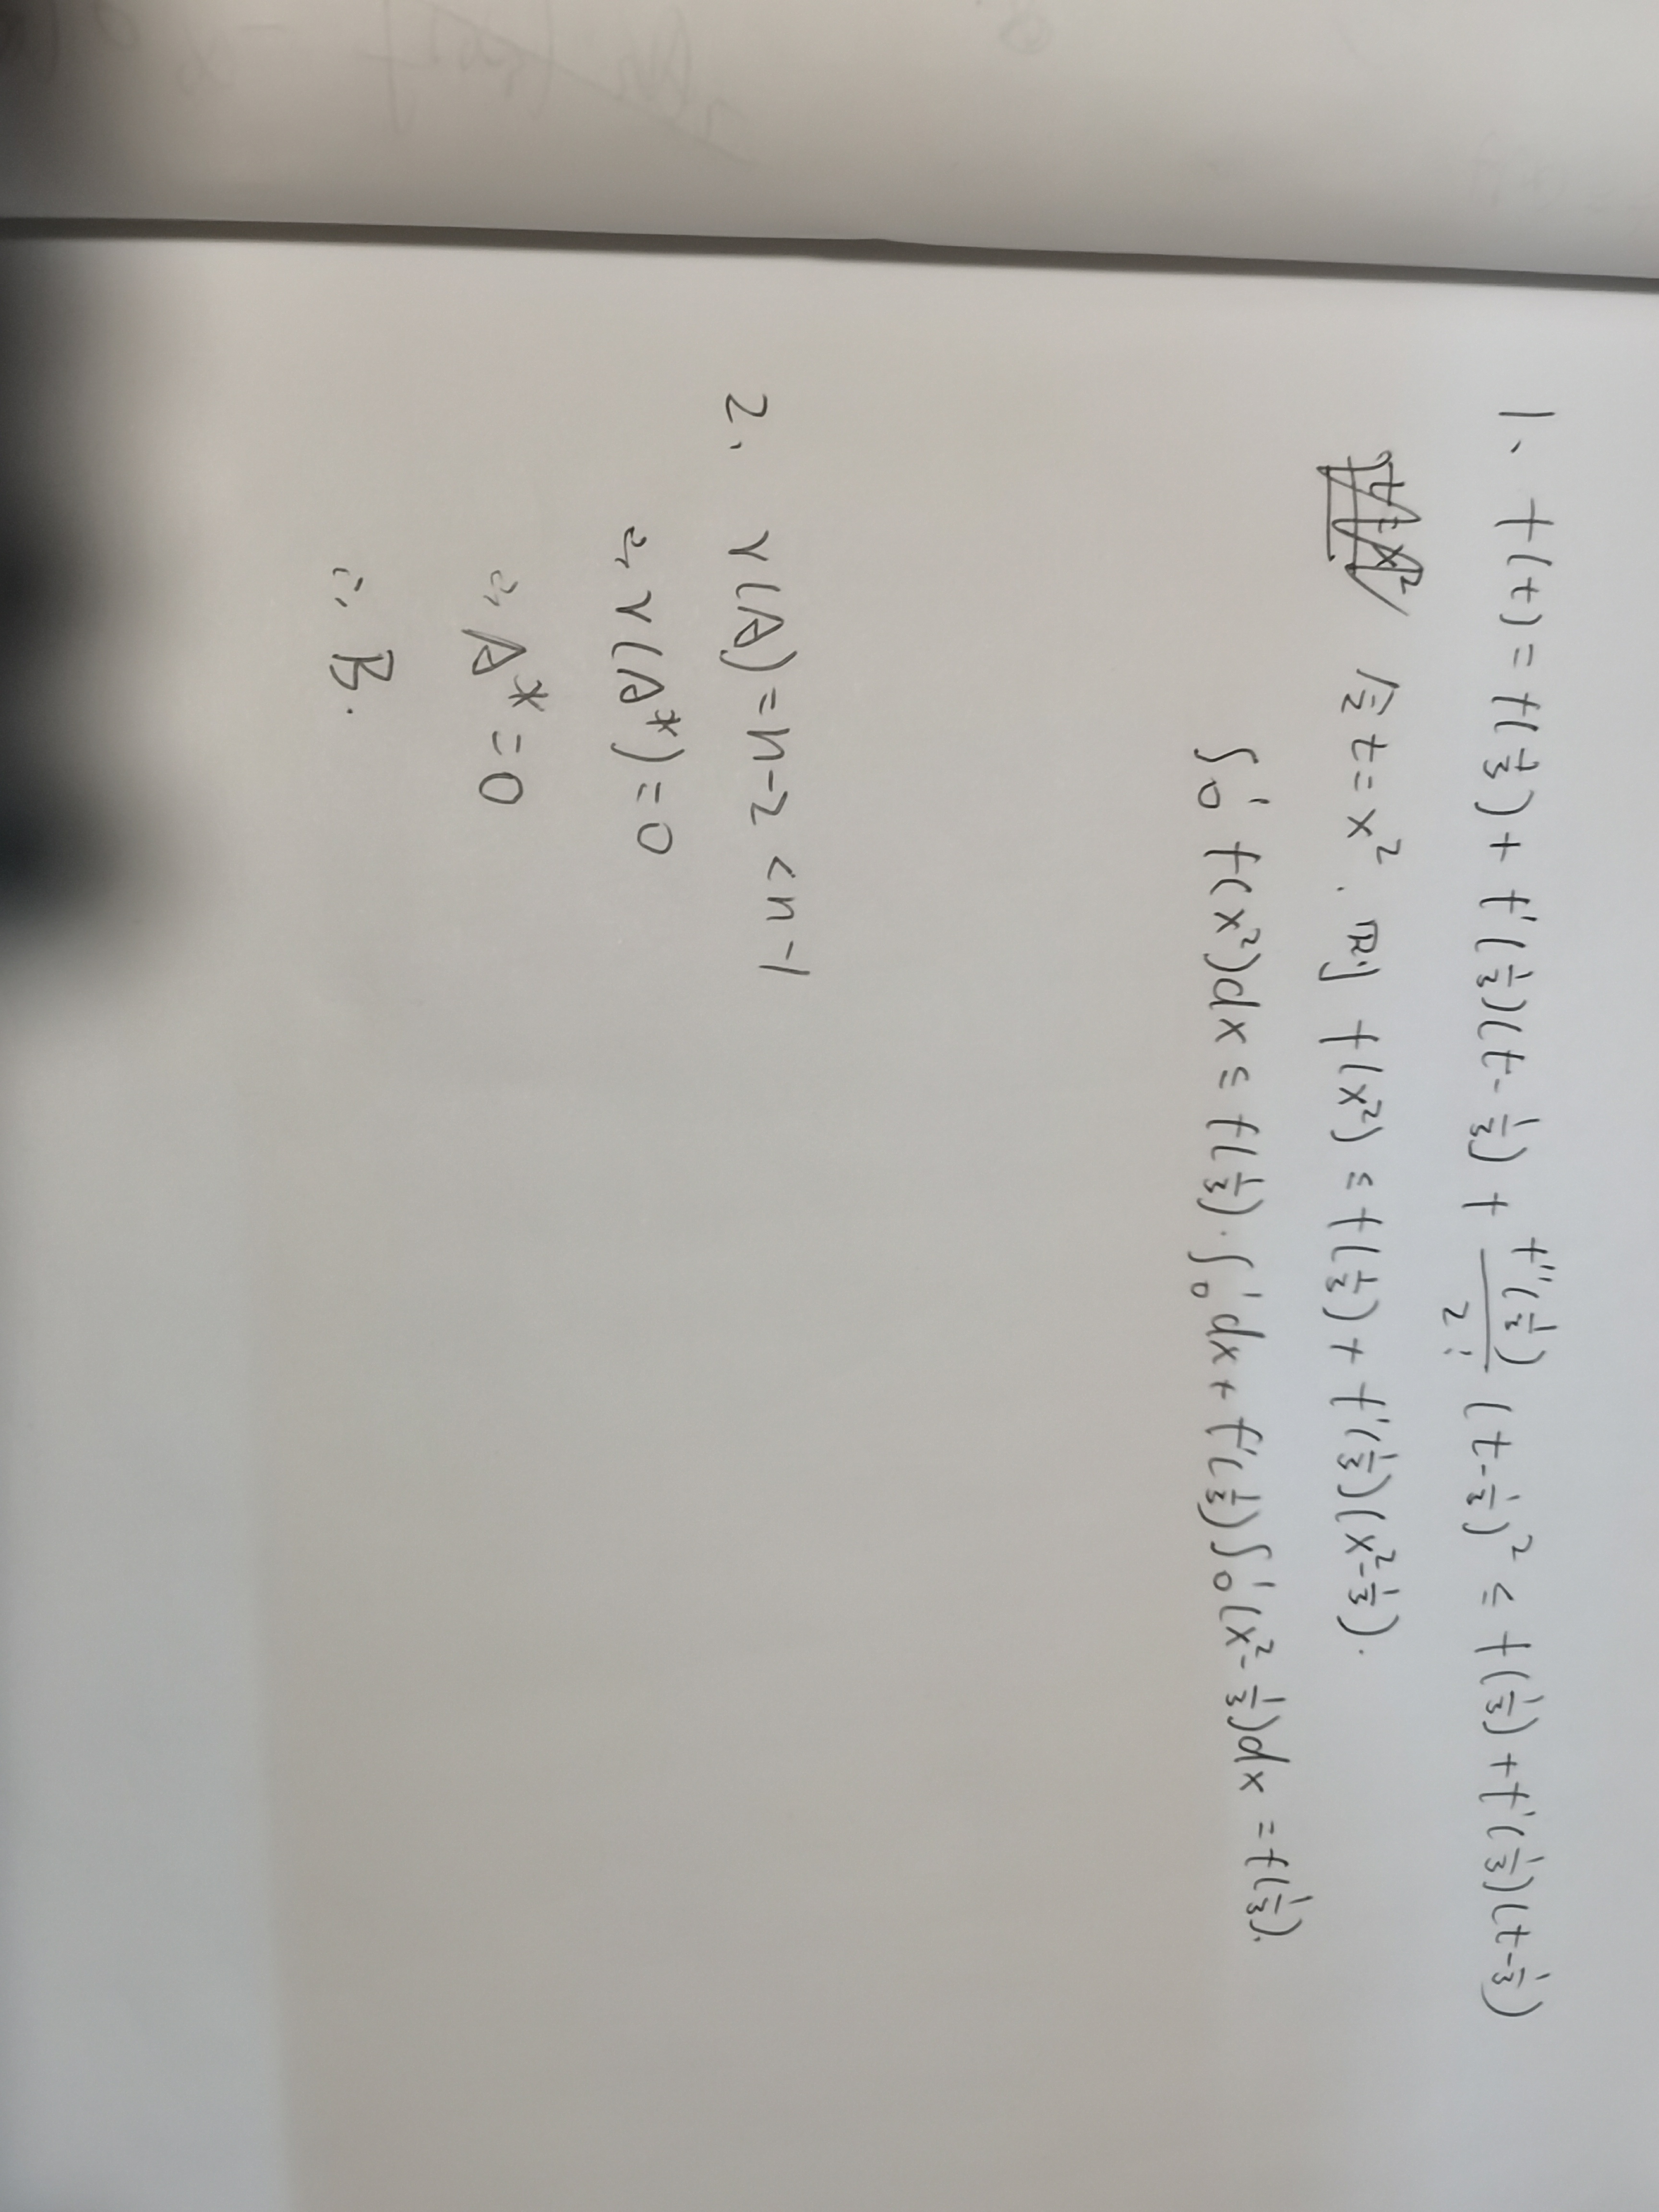 1、 f(t) = f(1/3) + f'(1/3)(t-1/3) + f''(1/3)/2! (t-1/3)² ≤ f(1/3) + f'(1/3)(t-1/3)
设 t = x². 则 f(x²) ≤ f(1/3) + f'(1/3)(x²-1/3).
∫₀¹ f(x²)dx ≤ f(1/3)·∫₀¹ dx + f'(1/3)∫₀¹(x²-1/3)dx = f(1/3).
2、 r(A) = n-2 < n-1
∴ r(A*) = 0
∴ A* = 0
∴ B.